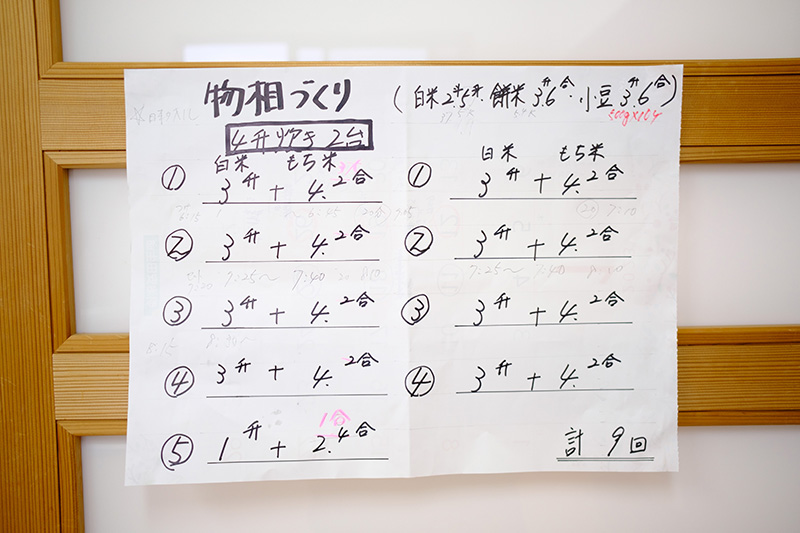 物相づくり (白米2斗5升 餅米3升6合 小豆3升6合)
500g×10個
4升炊き2台
白米 もち米 白米 もち米
① 3升 + 4.2合 ① 3升 + 4.2合
② 3升 + 4.2合 ② 3升 + 4.2合
7:25〜 7:40 7:25〜 7:40
③ 3升 + 4.2合 ③ 3升 + 4.2合
④ 3升 + 4.2合 ④ 3升 + 4.2合
1合
⑤ 1升 + 2.4合 計 9回